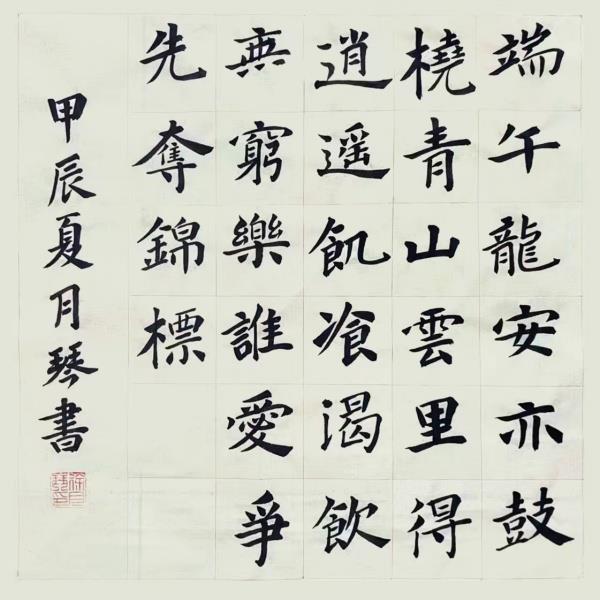 端午龍安亦鼓
橈青山雲里得
逍遥飢飡渴飲
無窮樂誰愛爭
先奪錦標
甲辰夏月琴書